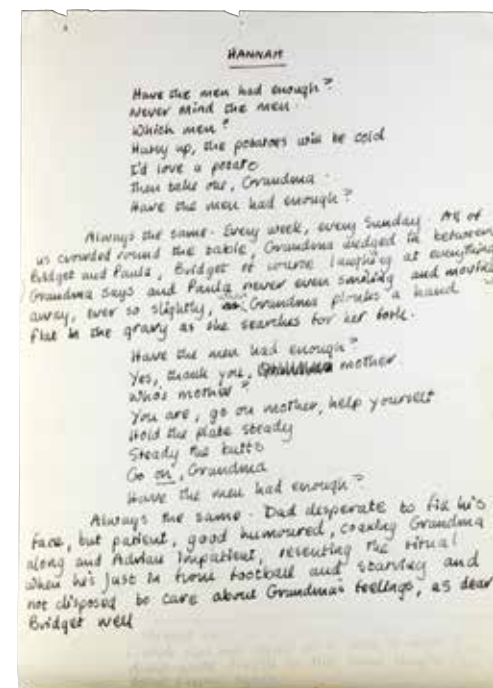 HANNAH
Have the men had enough?
Never mind the men.
Which men?
Hurry up, the potatoes will be cold
I'd love a potato
Then take one, Grandma.
Have the men had enough?
Always the same. Every week, every Sunday. All of
us crowded round the table, Grandma wedged in between
Bridget and Paula, Bridget of course laughing at everything
Grandma says and Paula never even smiling and moving
away, ever so slightly, when Grandma plonks a hand
flat in the gravy as she searches for her fork.
Have the men had enough?
Yes, thank you, mother.
Who's mother?
You are, go on mother, help yourself
Hold the plate steady
Steady the buffs
Go on, Grandma
Have the men had enough?
Always the same. Dad desperate to fix his
face, but patient, good humoured, coaxing Grandma
along and Adrian impatient, resenting the ritual
when he's just in from football and starving and
not disposed to care about Grandma's feelings, as dear
Bridget well